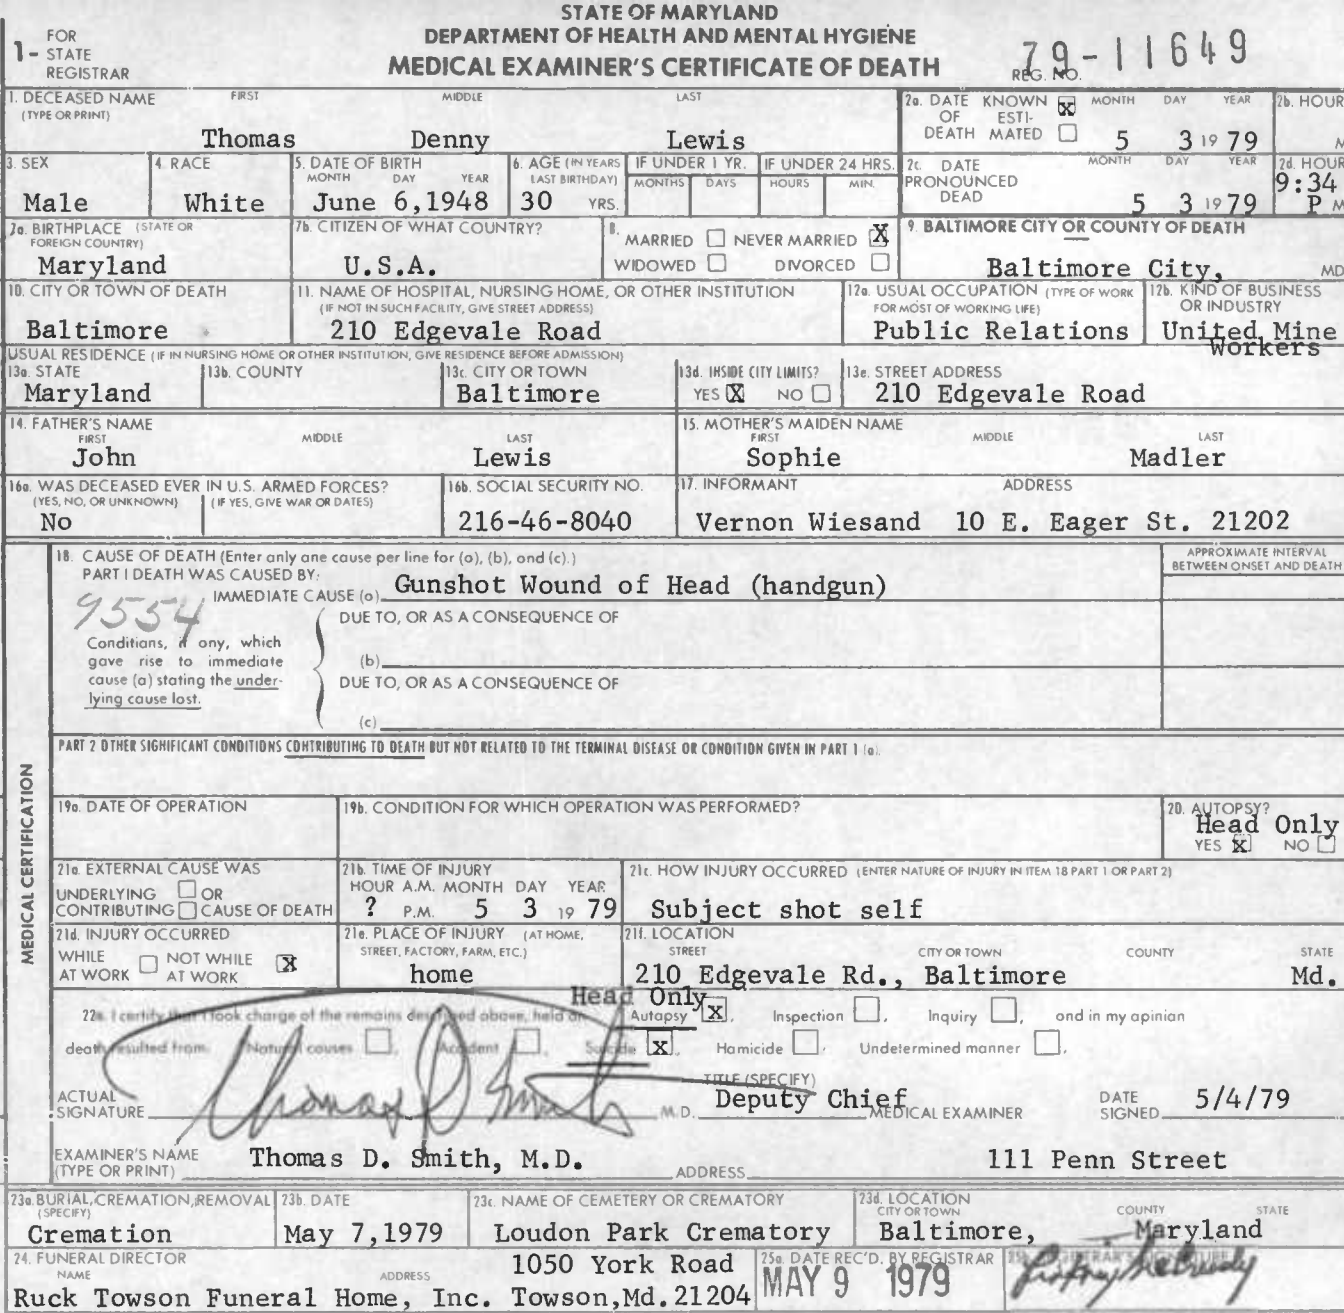 STATE OF MARYLAND
DEPARTMENT OF HEALTH AND MENTAL HYGIENE
MEDICAL EXAMINER'S CERTIFICATE OF DEATH
1- FOR STATE REGISTRAR
79-11649
REG. NO.
1. DECEASED NAME (TYPE OR PRINT) FIRST MIDDLE LAST
Thomas Denny Lewis
2a. DATE OF DEATH KNOWN X ESTIMATED MONTH DAY YEAR 2b. HOUR
5 3 19 79 M
3. SEX 4. RACE 5. DATE OF BIRTH MONTH DAY YEAR 6. AGE (IN YEARS LAST BIRTHDAY) IF UNDER 1 YR. MONTHS DAYS IF UNDER 24 HRS. HOURS MIN.
Male White June 6,1948 30 YRS.
2c. DATE PRONOUNCED DEAD MONTH DAY YEAR 2d. HOUR
5 3 19 79 9:34 P M
7a. BIRTHPLACE (STATE OR FOREIGN COUNTRY) 7b. CITIZEN OF WHAT COUNTRY?
Maryland U.S.A.
8. MARRIED NEVER MARRIED X
WIDOWED DIVORCED
9. BALTIMORE CITY OR COUNTY OF DEATH
Baltimore City, MD
10. CITY OR TOWN OF DEATH
Baltimore
11. NAME OF HOSPITAL, NURSING HOME, OR OTHER INSTITUTION
(IF NOT IN SUCH FACILITY, GIVE STREET ADDRESS)
210 Edgevale Road
12a. USUAL OCCUPATION (TYPE OF WORK FOR MOST OF WORKING LIFE)
Public Relations
12b. KIND OF BUSINESS OR INDUSTRY
United Mine Workers
USUAL RESIDENCE (IF IN NURSING HOME OR OTHER INSTITUTION, GIVE RESIDENCE BEFORE ADMISSION)
13a. STATE 13b. COUNTY 13c. CITY OR TOWN 13d. INSIDE CITY LIMITS? 13e. STREET ADDRESS
Maryland Baltimore YES X NO 210 Edgevale Road
14. FATHER'S NAME FIRST MIDDLE LAST
John Lewis
15. MOTHER'S MAIDEN NAME FIRST MIDDLE LAST
Sophie Madler
16a. WAS DECEASED EVER IN U.S. ARMED FORCES?
(YES, NO, OR UNKNOWN) (IF YES, GIVE WAR OR DATES)
No
16b. SOCIAL SECURITY NO.
216-46-8040
17. INFORMANT ADDRESS
Vernon Wiesand 10 E. Eager St. 21202
MEDICAL CERTIFICATION
18. CAUSE OF DEATH (Enter only one cause per line for (a), (b), and (c).)
APPROXIMATE INTERVAL BETWEEN ONSET AND DEATH
PART I DEATH WAS CAUSED BY:
IMMEDIATE CAUSE (a) Gunshot Wound of Head (handgun)
9554
DUE TO, OR AS A CONSEQUENCE OF
Conditions, if any, which gave rise to immediate cause (a) stating the underlying cause lost.
(b)
DUE TO, OR AS A CONSEQUENCE OF
(c)
PART 2 OTHER SIGNIFICANT CONDITIONS CONTRIBUTING TO DEATH BUT NOT RELATED TO THE TERMINAL DISEASE OR CONDITION GIVEN IN PART 1 (a).
19a. DATE OF OPERATION 19b. CONDITION FOR WHICH OPERATION WAS PERFORMED?
20. AUTOPSY?
Head Only
YES X NO
21a. EXTERNAL CAUSE WAS
UNDERLYING OR
CONTRIBUTING CAUSE OF DEATH
21b. TIME OF INJURY
HOUR A.M. MONTH DAY YEAR
? P.M. 5 3 19 79
21c. HOW INJURY OCCURRED (ENTER NATURE OF INJURY IN ITEM 18 PART 1 OR PART 2)
Subject shot self
21d. INJURY OCCURRED
WHILE AT WORK NOT WHILE AT WORK X
21e. PLACE OF INJURY (AT HOME, STREET, FACTORY, FARM, ETC.)
home
21f. LOCATION
STREET CITY OR TOWN COUNTY STATE
210 Edgevale Rd., Baltimore Md.
Head Only
22a. I certify that I took charge of the remains described above, held an Autopsy X, Inspection , Inquiry , and in my opinion
death resulted from: Natural causes , Accident , Suicide X, Homicide , Undetermined manner .
ACTUAL SIGNATURE Thomas D Smith M.D.
TITLE (SPECIFY)
Deputy Chief MEDICAL EXAMINER
DATE SIGNED 5/4/79
EXAMINER'S NAME (TYPE OR PRINT) Thomas D. Smith, M.D. ADDRESS 111 Penn Street
23a. BURIAL, CREMATION, REMOVAL (SPECIFY) 23b. DATE 23c. NAME OF CEMETERY OR CREMATORY 23d. LOCATION CITY OR TOWN COUNTY STATE
Cremation May 7,1979 Loudon Park Crematory Baltimore, Maryland
24. FUNERAL DIRECTOR
NAME ADDRESS
1050 York Road
Ruck Towson Funeral Home, Inc. Towson,Md.21204
25a. DATE REC'D. BY REGISTRAR
MAY 9 1979